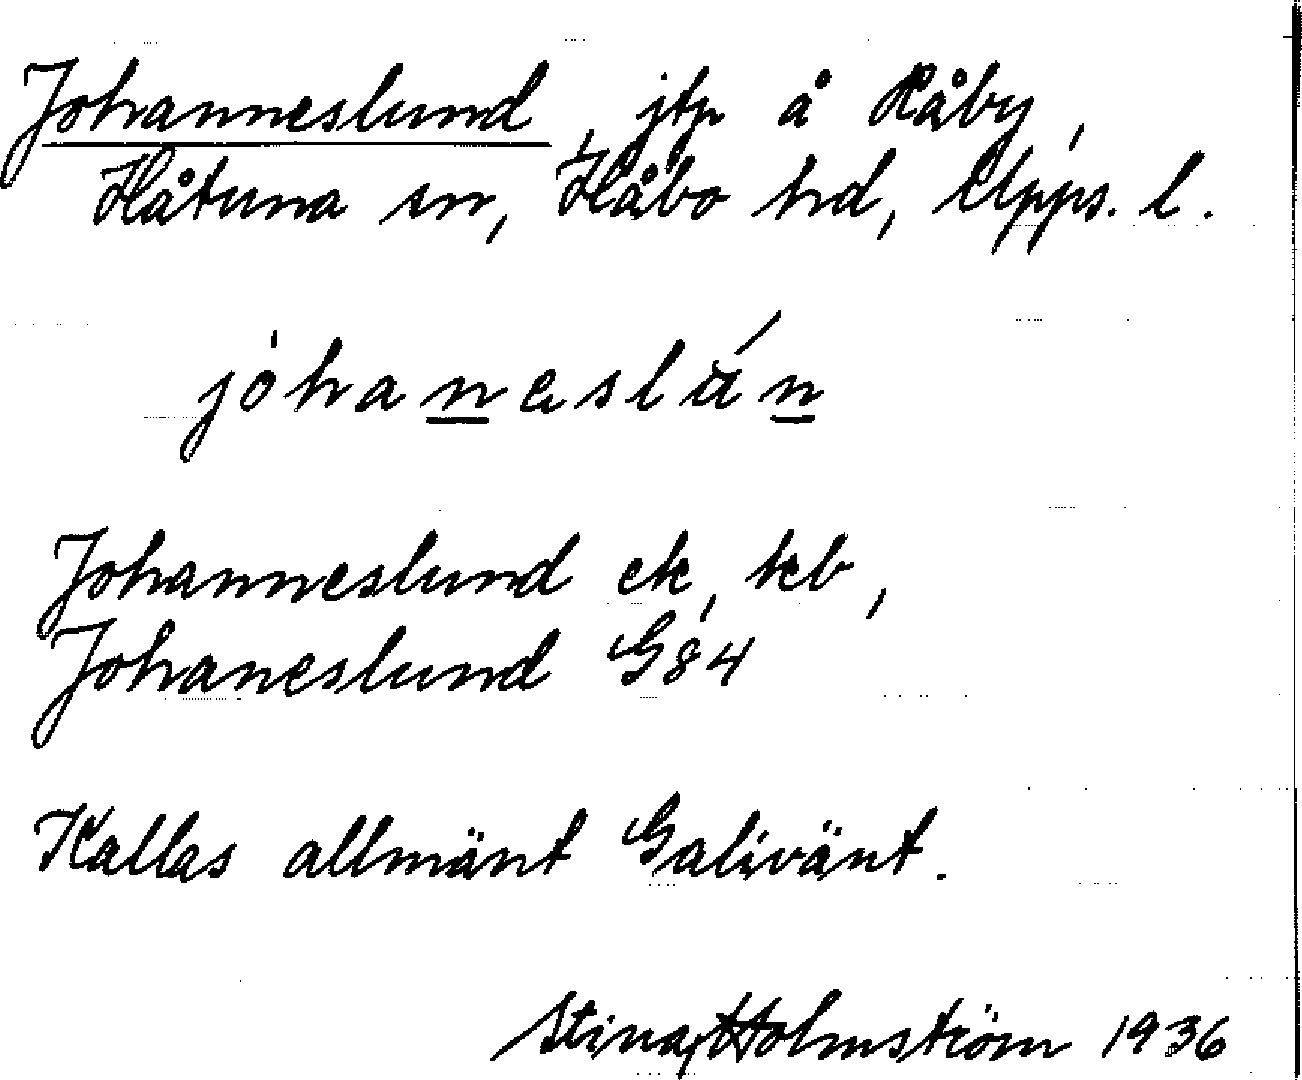 Johanneslund, jtp å Råby,
Håtuna sn, Håbo hd, Upps. l.
jòhaneslán
Johanneslund ek, kb,
Johaneslund G84
Kallas allmänt Galivänt.
Stina Holmström 1936